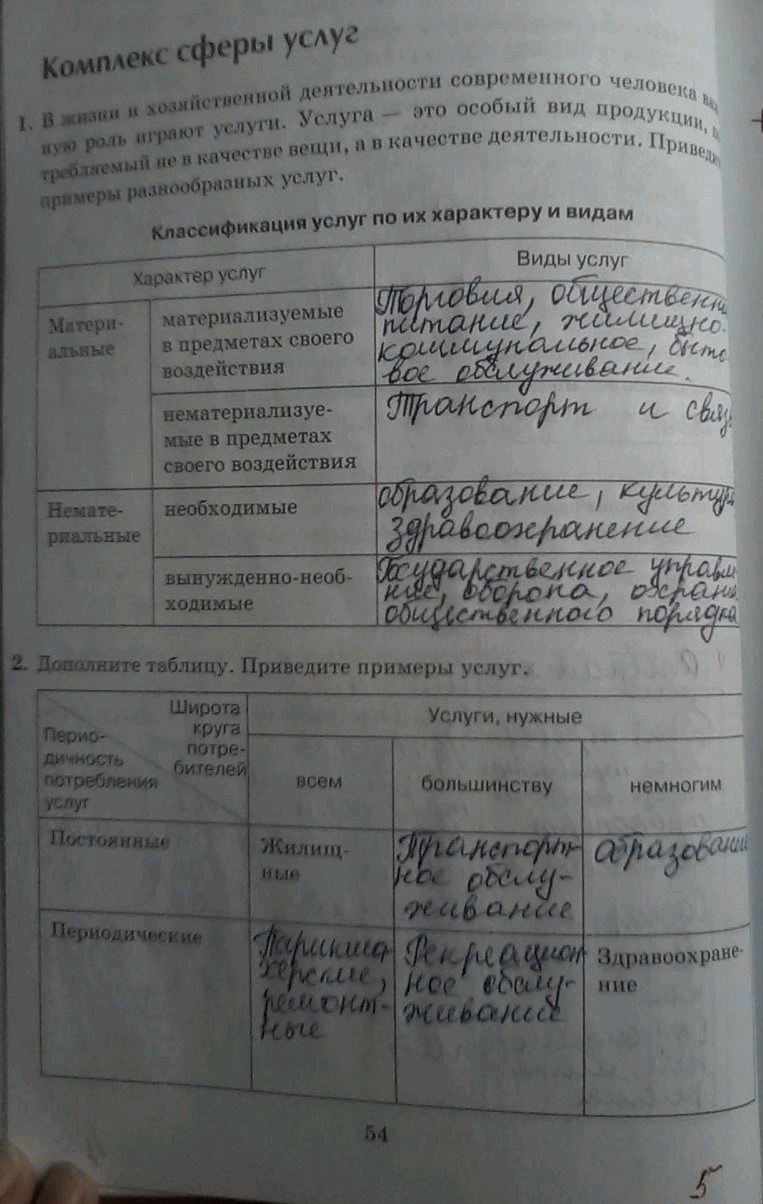 Комплекс сферы услуг
1. В жизни и хозяйственной деятельности современного человека
ную роль играют услуги. Услуга — это особый вид продукции,
требляемый не в качестве вещи, а в качестве деятельности. Приведи
примеры разнообразных услуг.
Классификация услуг по их характеру и видам
Характер услуг
Виды услуг
Матери-
альные
материализуемые
в предметах своего
воздействия
Торговля, обществен
питание, жилищно-
коммунальное, быто-
вое обслуживание.
нематериализуе-
мые в предметах
своего воздействия
Транспорт и связ
Немате-
риальные
необходимые
образование, культур
здравоохранение
вынужденно-необ-
ходимые
Государственное управл
ние, оборона, охрана
общественного порядка
2. Дополните таблицу. Приведите примеры услуг.
Широта
круга
потре-
бителей
Перио-
дичность
потребления
услуг
Услуги, нужные
всем
большинству
немногим
Постоянные
Жилищ-
ные
Транспорт-
ное обслу-
живание
образовани
Периодические
Парикмах
херские,
ремонт-
ные
Рекреацион
ное обслу-
живание
Здравоохране-
ние
54
5